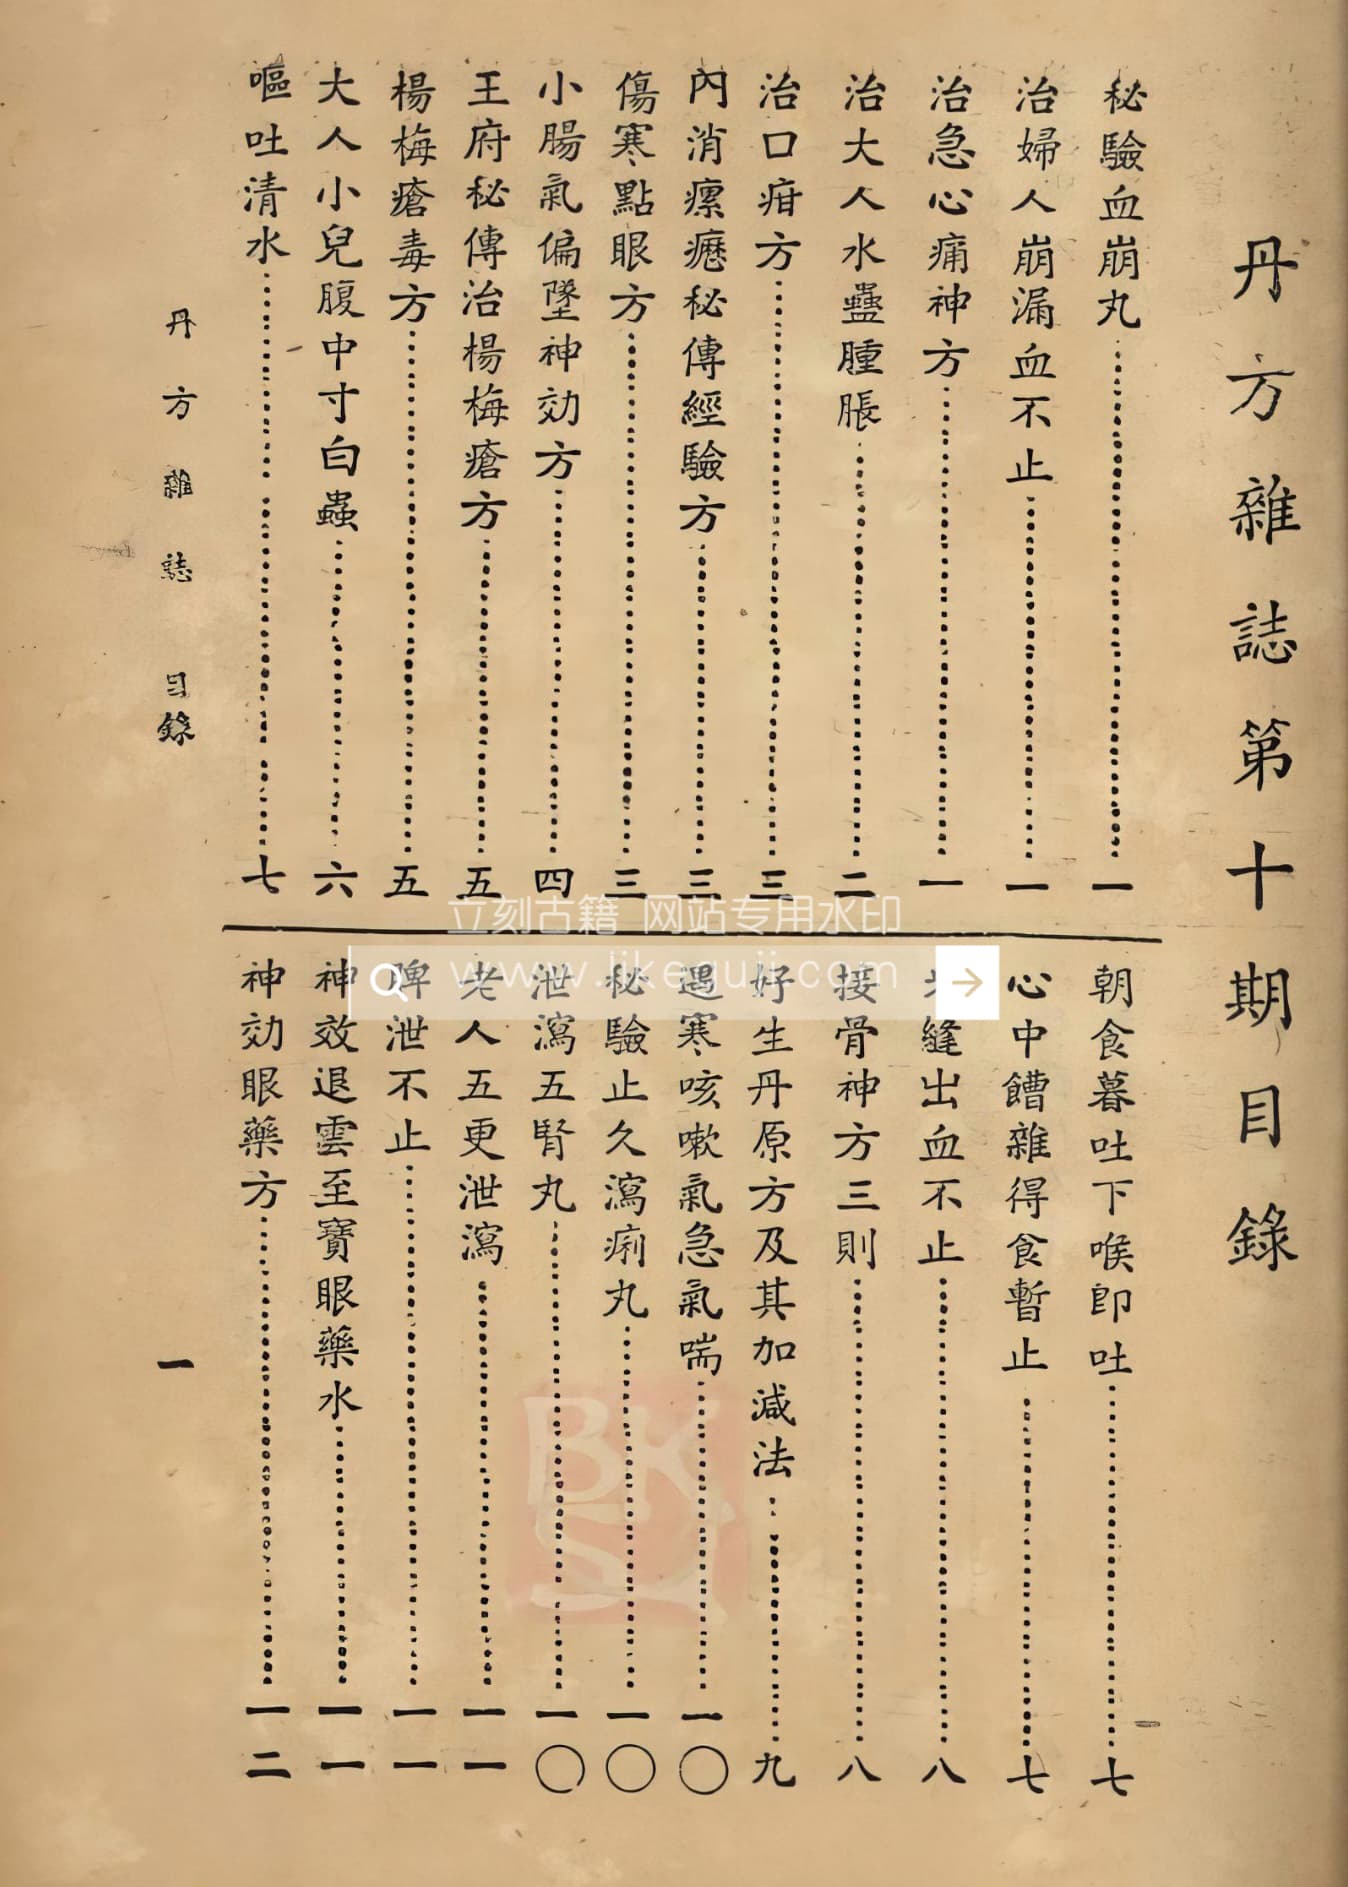 丹方雜誌第十期目錄
秘驗血崩丸一
治婦人崩漏血不止一
治急心痛神方一
治大人水蠱腫脹二
治口疳方三
內消瘰癧秘傳經驗方三
傷寒點眼方三
小腸氣偏墜神効方四
王府秘傳治楊梅瘡方五
楊梅瘡毒方五
大人小兒腹中寸白蟲六
嘔吐清水七
朝食暮吐下喉卽吐七
心中饋雜得食暫止七
縫出血不止八
接骨神方三則八
好生丹原方及其加減法九
遇寒咳嗽氣急氣喘一〇
秘驗止久瀉痢丸一〇
泄瀉五腎丸一〇
老人五更泄瀉一一
脾泄不止一一
神效退雲至寶眼藥水一一
神効眼藥方一二
丹方雜誌 目錄
一
立刻古籍 网站专用水印
www.likeguji.com
BK